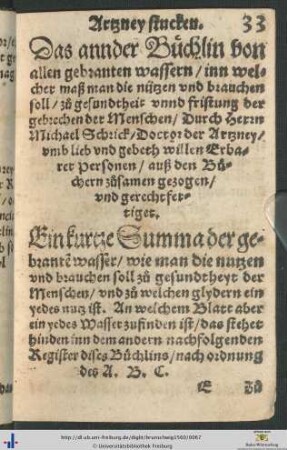 Artzney stucken. 33
Das annder Büchlin von
allen gebranten wassern / inn wel-
cher maß man die nützen vnd brauchen
soll / zů gesundtheit vnnd fristung der
gebrechen der Menschen / Durch Herrn
Michael Schrick / Doctor der Artzney /
vmb lieb vnd gebeth willen Erba-
rer Personen / auß den Bü-
chern zůsamen gezogen /
vnd gerechtfer-
tiget.
Ein kurtze Summa der ge-
brantē wasser / wie man die nutzen
vnd brauchen soll zů gesundtheyt der
Menschen / vnd zů welchen glydern ein
yedes nutz ist. An welchem Blatt aber
ein yedes Wasser zufinden ist / das stehet
hinden inn dem andern nachfolgenden
Register dises Büchlins / nach ordnung
des A. B. C.
E Zů
http://dl.ub.uni-freiburg.de/diglit/brunschwig1560/0067
© Universitätsbibliothek Freiburg